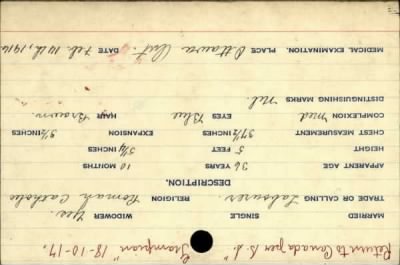 Return to Canada per S.S.
"Grampian" 18-10-17.
MARRIED SINGLE WIDOWER Yes.
TRADE OR CALLING Labourer RELIGION Roman Catholic
DESCRIPTION.
APPARENT AGE 36 YEARS 10 MONTHS
HEIGHT 5 FEET 5¼ INCHES
CHEST MEASUREMENT 37½ INCHES EXPANSION 3½ INCHES
COMPLEXION Med EYES Blue HAIR Brown
DISTINGUISHING MARKS Nil.
MEDICAL EXAMINATION. PLACE Ottawa Ont. DATE Feb. 14th, 1916